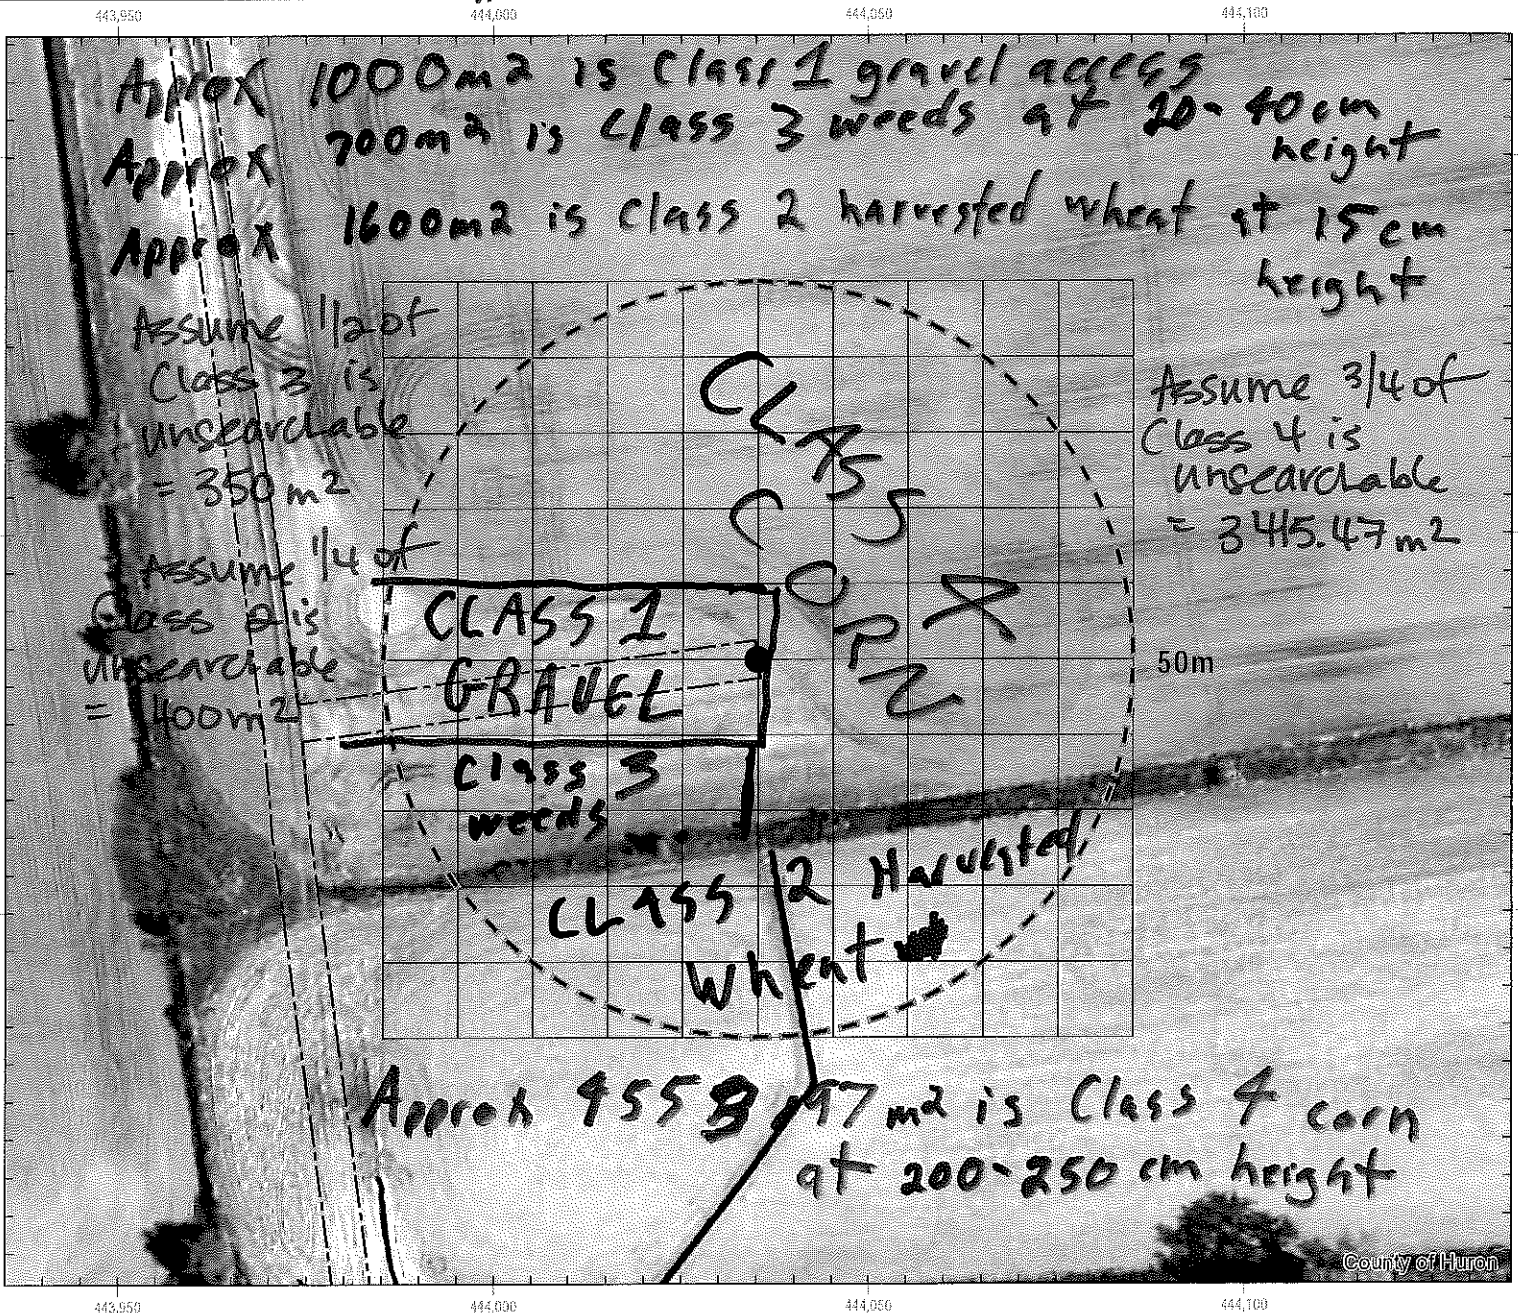 443,950 444,000 444,050 444,100
Approx 1000m2 is Class 1 gravel access
Approx 700m2 is Class 3 weeds at 20-40cm
height
Approx 1600m2 is Class 2 harvested wheat at 15cm
height
Assume 1/2 of
Class 3 is
unsearchable
= 350 m2
Assume 1/4 of
Class 2 is
unsearchable
= 400m2
Assume 3/4 of
Class 4 is
unsearchable
= 3415.47 m2
CLASS 4
CORN
CLASS 1
GRAVEL
50m
Class 3
weeds
CLASS 2 Harvested
Wheat
Approx 4553.97m2 is Class 4 corn
at 200-250 cm height
County of Huron
443,950 444,000 444,050 444,100